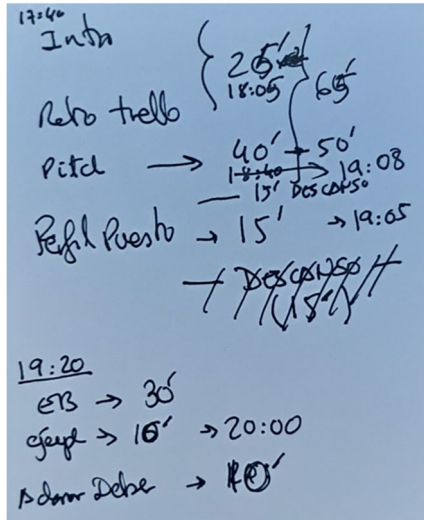 17:40
Intro
25'
18:05
65'
Retro trello
Pitch → 40' + 50'
18:40 → 19:08
15' DESCANSO
Perfil Puesto → 15' → 19:05
DESCANSO
(15')
19:20
EB → 30'
→ 10' → 20:00
Deber → 10'